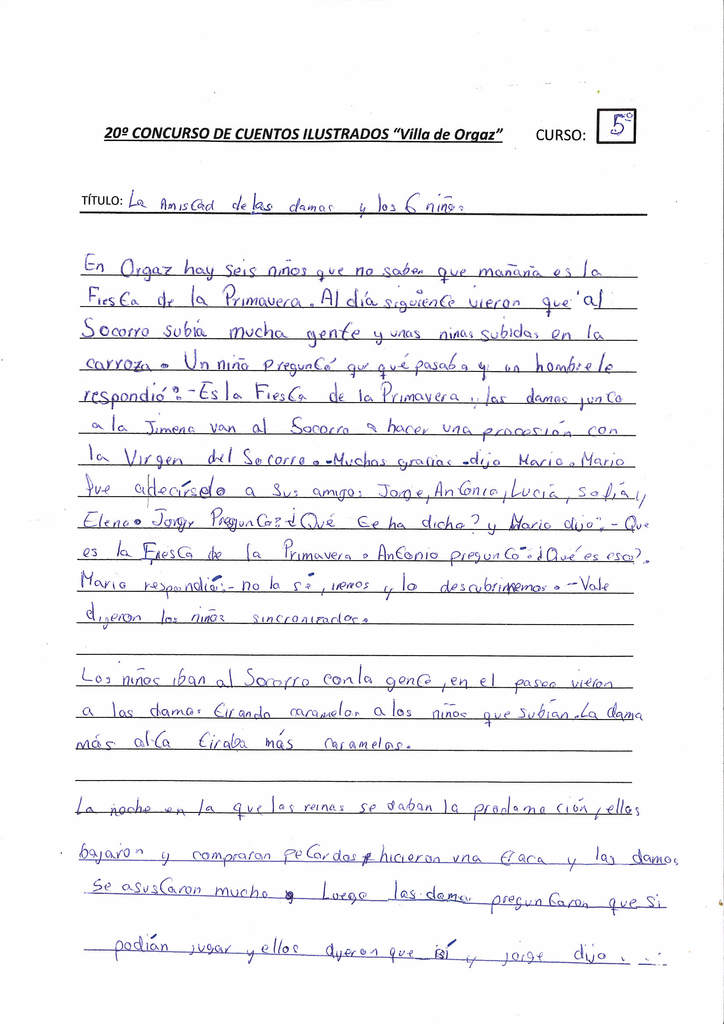 20º CONCURSO DE CUENTOS ILUSTRADOS “Villa de Orgaz” CURSO: 5º
TÍTULO: La Amistad de las damas y los 6 niños
En Orgaz hay seis niños que no saben que mañana es la
Fiesta de la Primavera. Al día siguiente vieron que al
Socorro subía mucha gente y unas niñas subidas en la
carroza. Un niño preguntó qué pasaba y un hombre le
respondió: -Es la Fiesta de la Primavera, las damas junto
a la Jimena van al Socorro a hacer una procesión con
la Virgen del Socorro. -Muchas gracias -dijo Mario. Mario
fue a decírselo a sus amigos Jorge, Antonio, Lucía, Sofía y
Elena. Jorge Preguntó: ¿Qué te ha dicho? y Mario dijo: - Que
es la Fiesta de la Primavera. Antonio preguntó: ¿Qué es eso?.
Mario respondió: - no la sé, iremos y lo descubriremos. - Vale
digeron los niños sincronizados.
Los niños iban al Socorro con la gente, en el paseo vieron
a las damas tirando caramelos a los niños que subían. La dama
más alta tiraba más caramelos.
La noche en la que las reinas se daban la proclamación, ellos
bajaron y compraron petardos hicieron una traca y las damas
se asustaron mucho. Luego las damas preguntaron que si
podían jugar y ellos dijeron que sí y jorge dijo. . . .